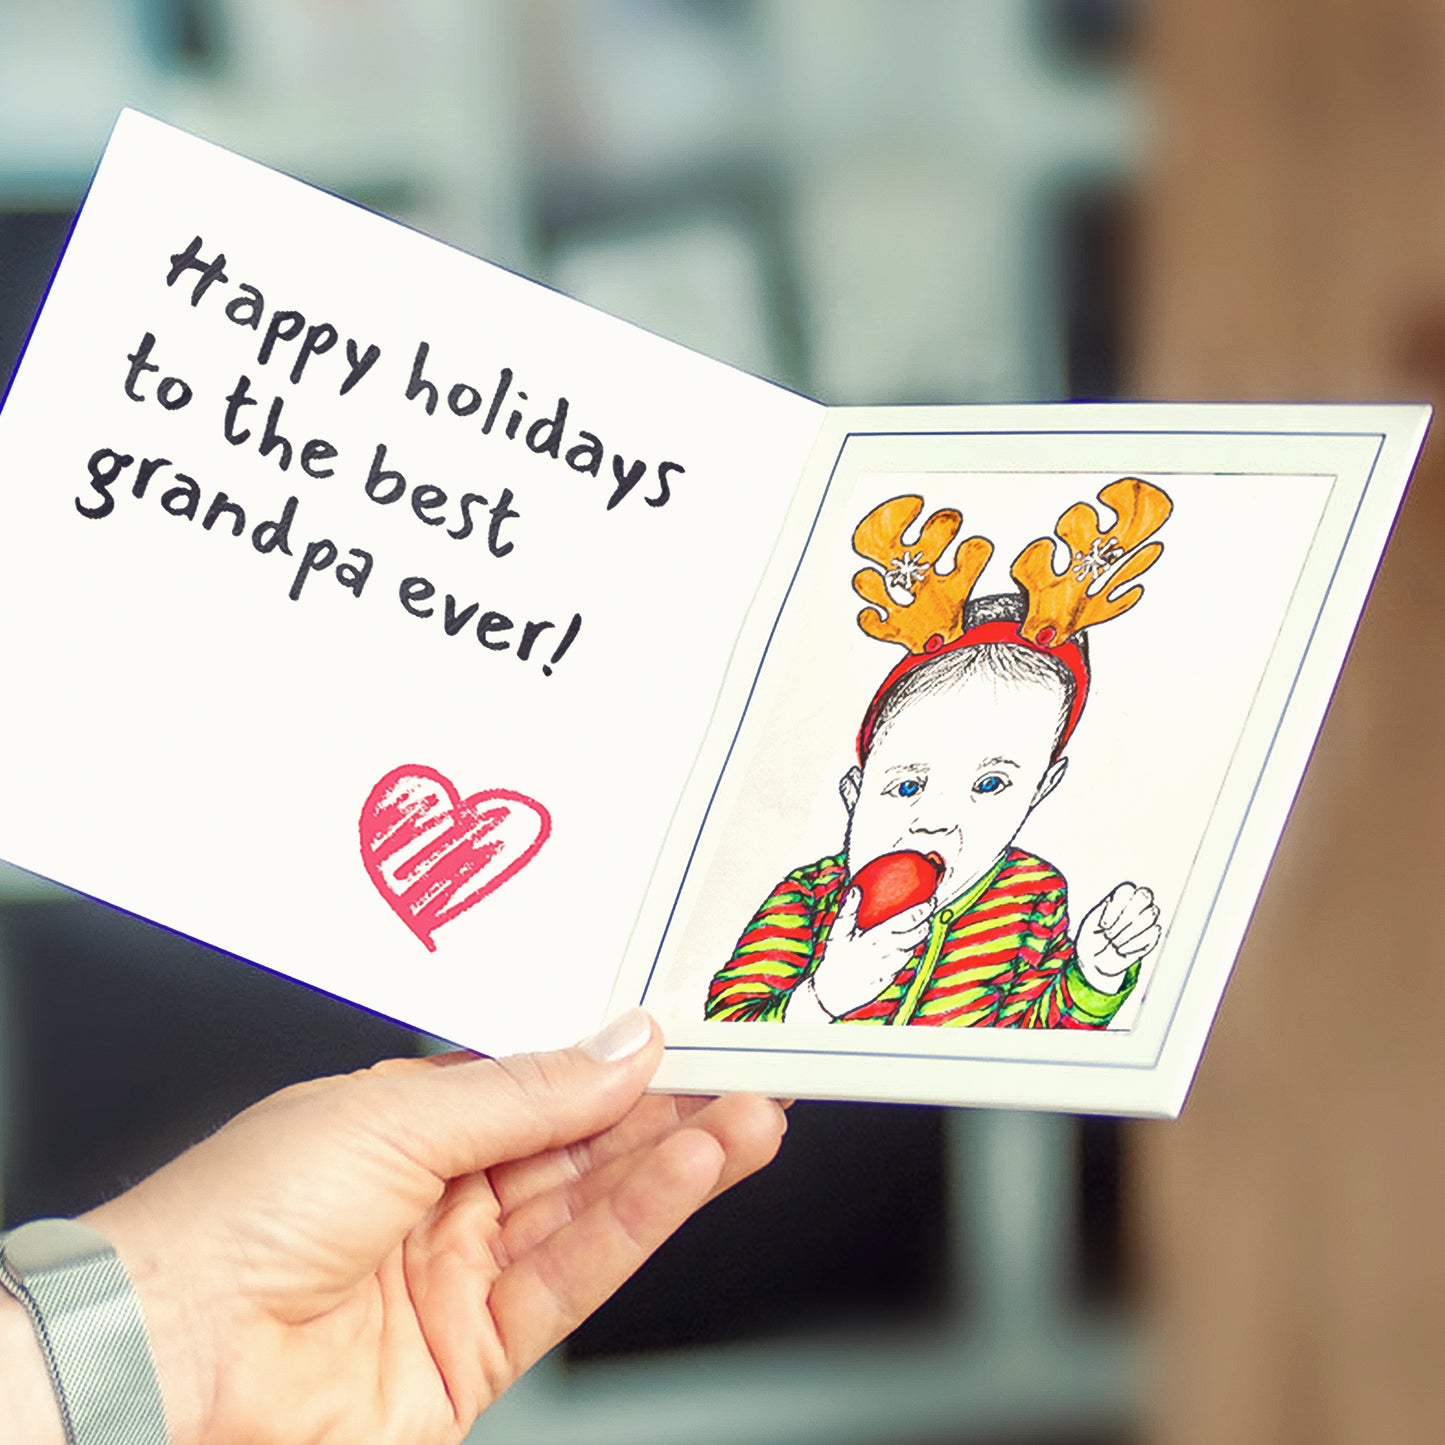 Happy holidays
to the best
grandpa ever!